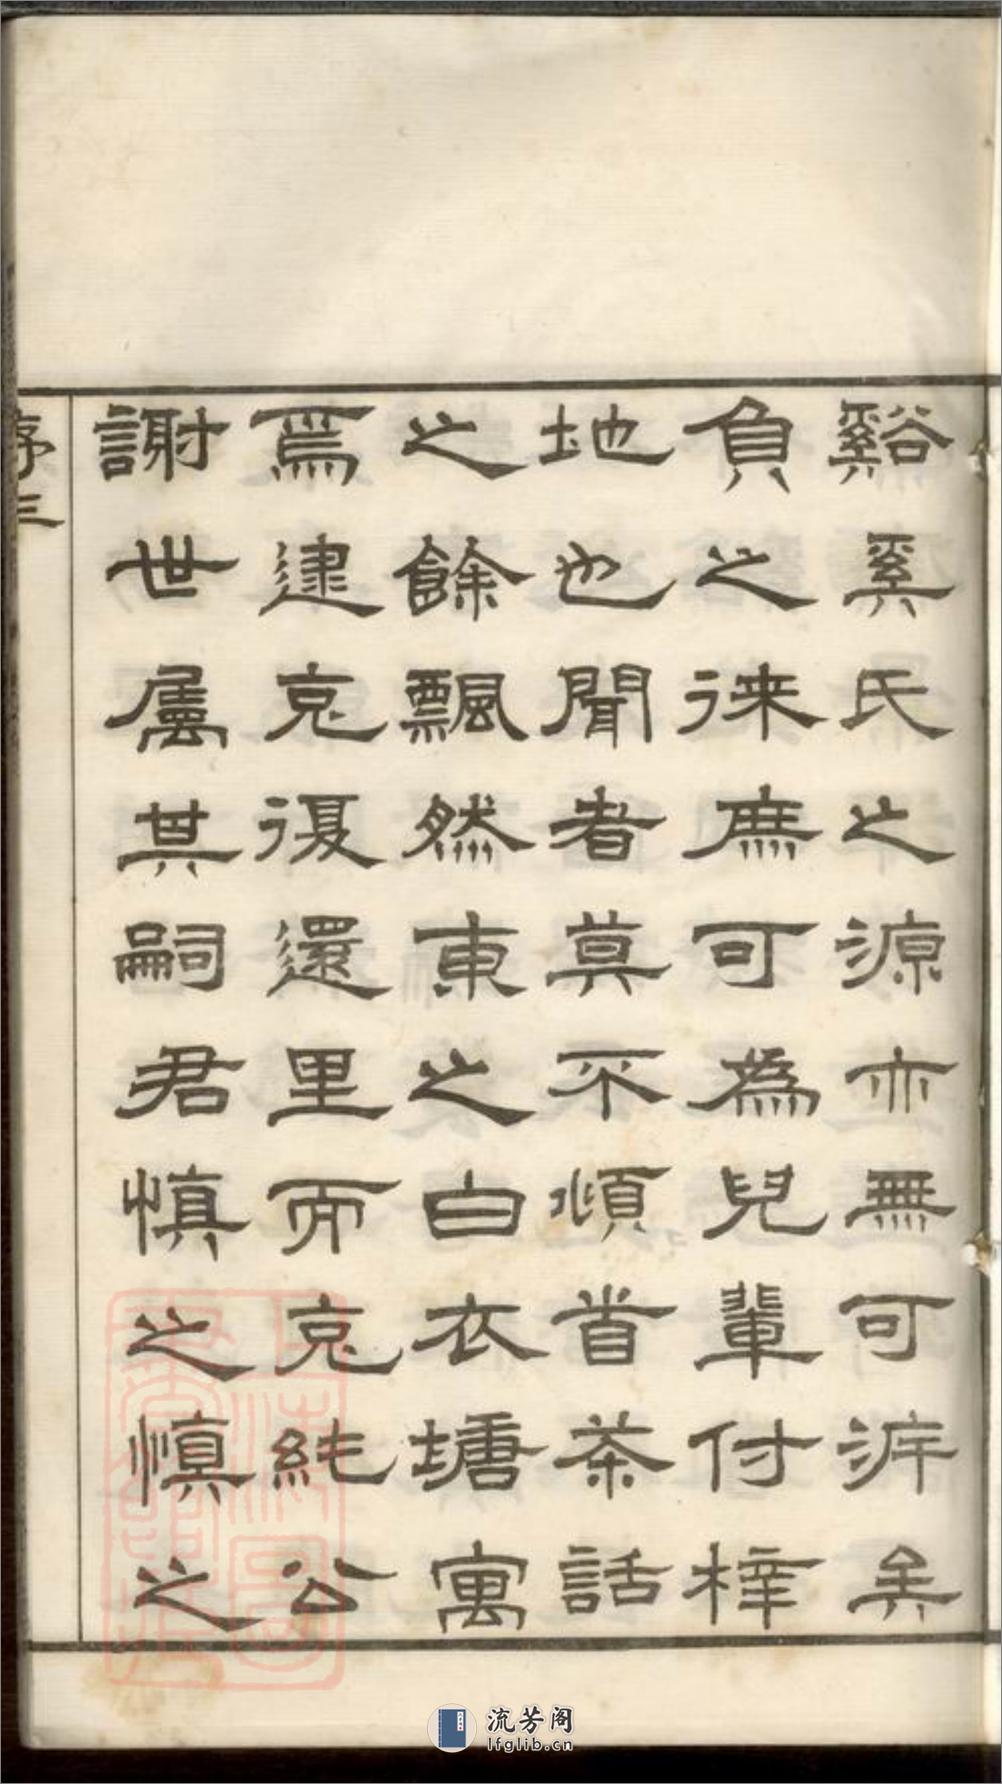 谿奚氏之源亦無可泝矣
負之徠庶可為兒輩付梓
地也聞者莫不頫首茶話
之餘飄然東之白衣塘寓
焉逮克復還里而克純公
謝世屬其嗣君慎之慎之
序 三
流芳阁
lfglib.cn